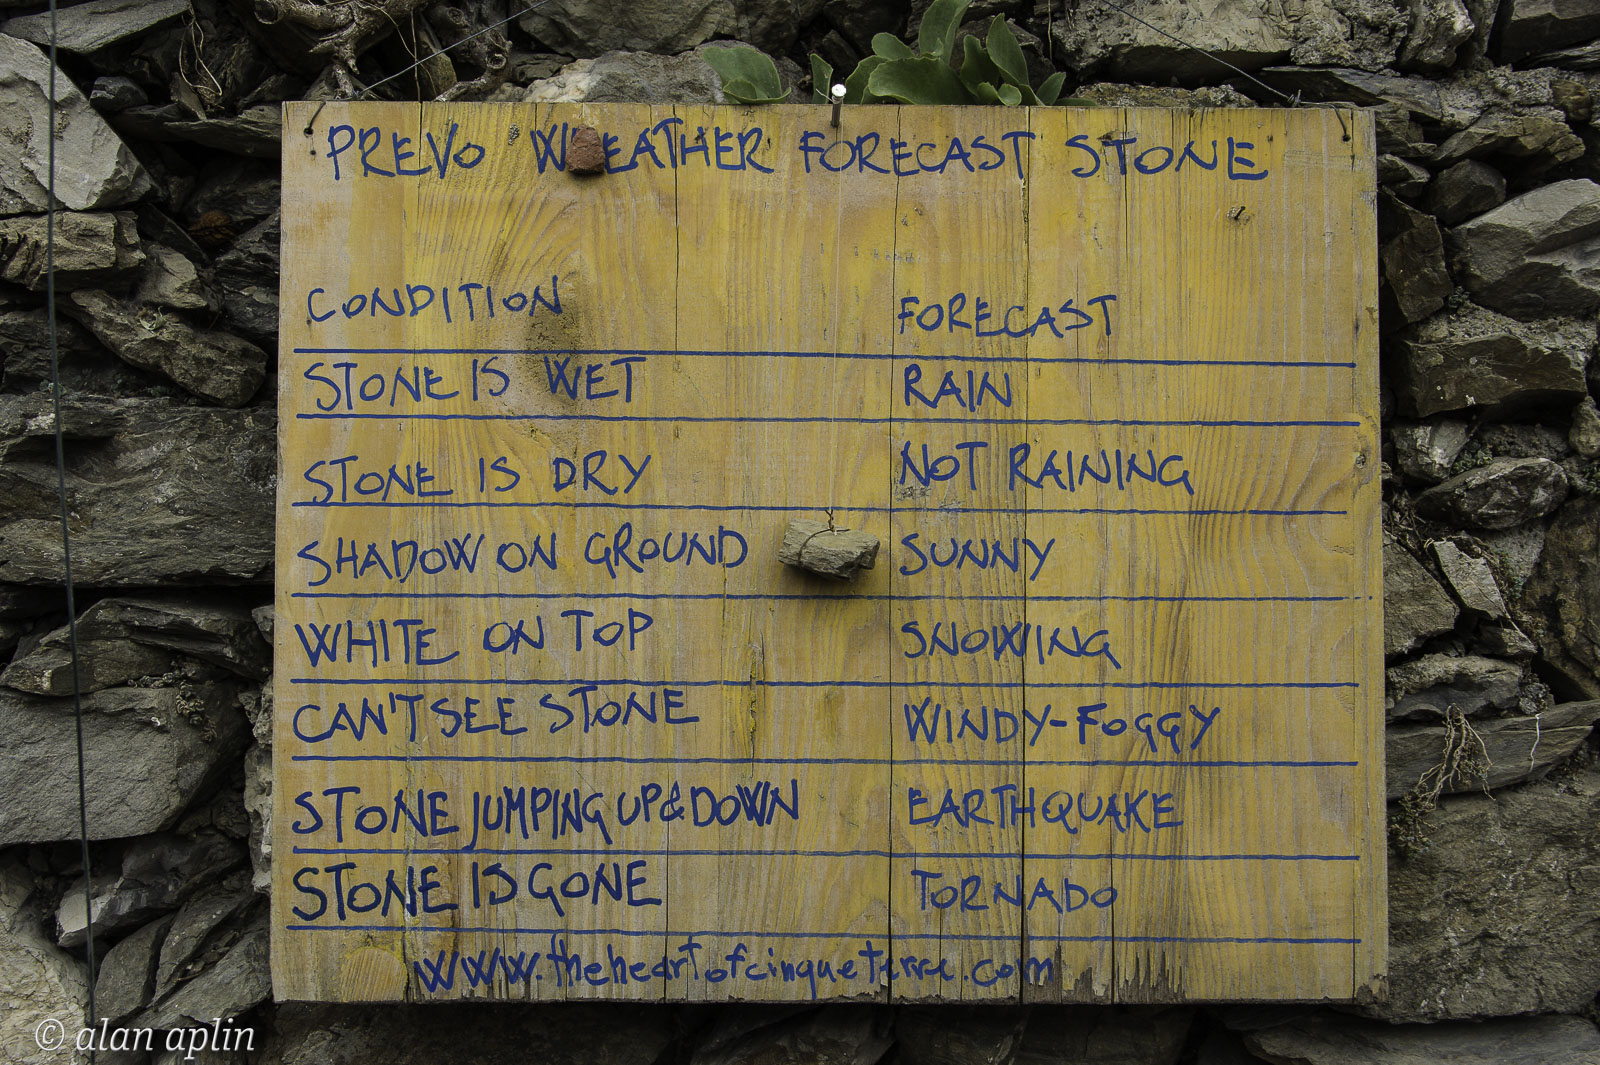 PREVO WEATHER FORECAST STONE
CONDITION FORECAST
STONE IS WET RAIN
STONE IS DRY NOT RAINING
SHADOW ON GROUND SUNNY
WHITE ON TOP SNOWING
CAN'T SEE STONE WINDY-FOGGY
STONE JUMPING UP & DOWN EARTHQUAKE
STONE IS GONE TORNADO
www.theheartofcinqueterre.com
© alan aplin